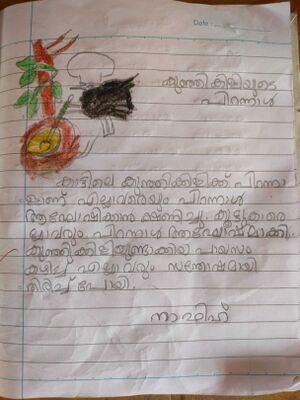 Date :
കുഞ്ഞികിളിയുടെ
പിറന്നാൾ
കാട്ടിലെ കുഞ്ഞിക്കിളിക്ക് പിറന്നാ
ളാണ് എല്ലാവരെയും പിറന്നാൾ
ആഘോഷിക്കാൻ ക്ഷണിച്ചു. കൂട്ടുകാരെ
ല്ലാവരും പിറന്നാൾ ആഘോഷമാക്കി.
കുഞ്ഞിക്കിളിയുണ്ടാക്കിയ പായസം
കുടിച്ച് എല്ലാവരും സന്തോഷമായി
തിരിച്ച് പോയി.